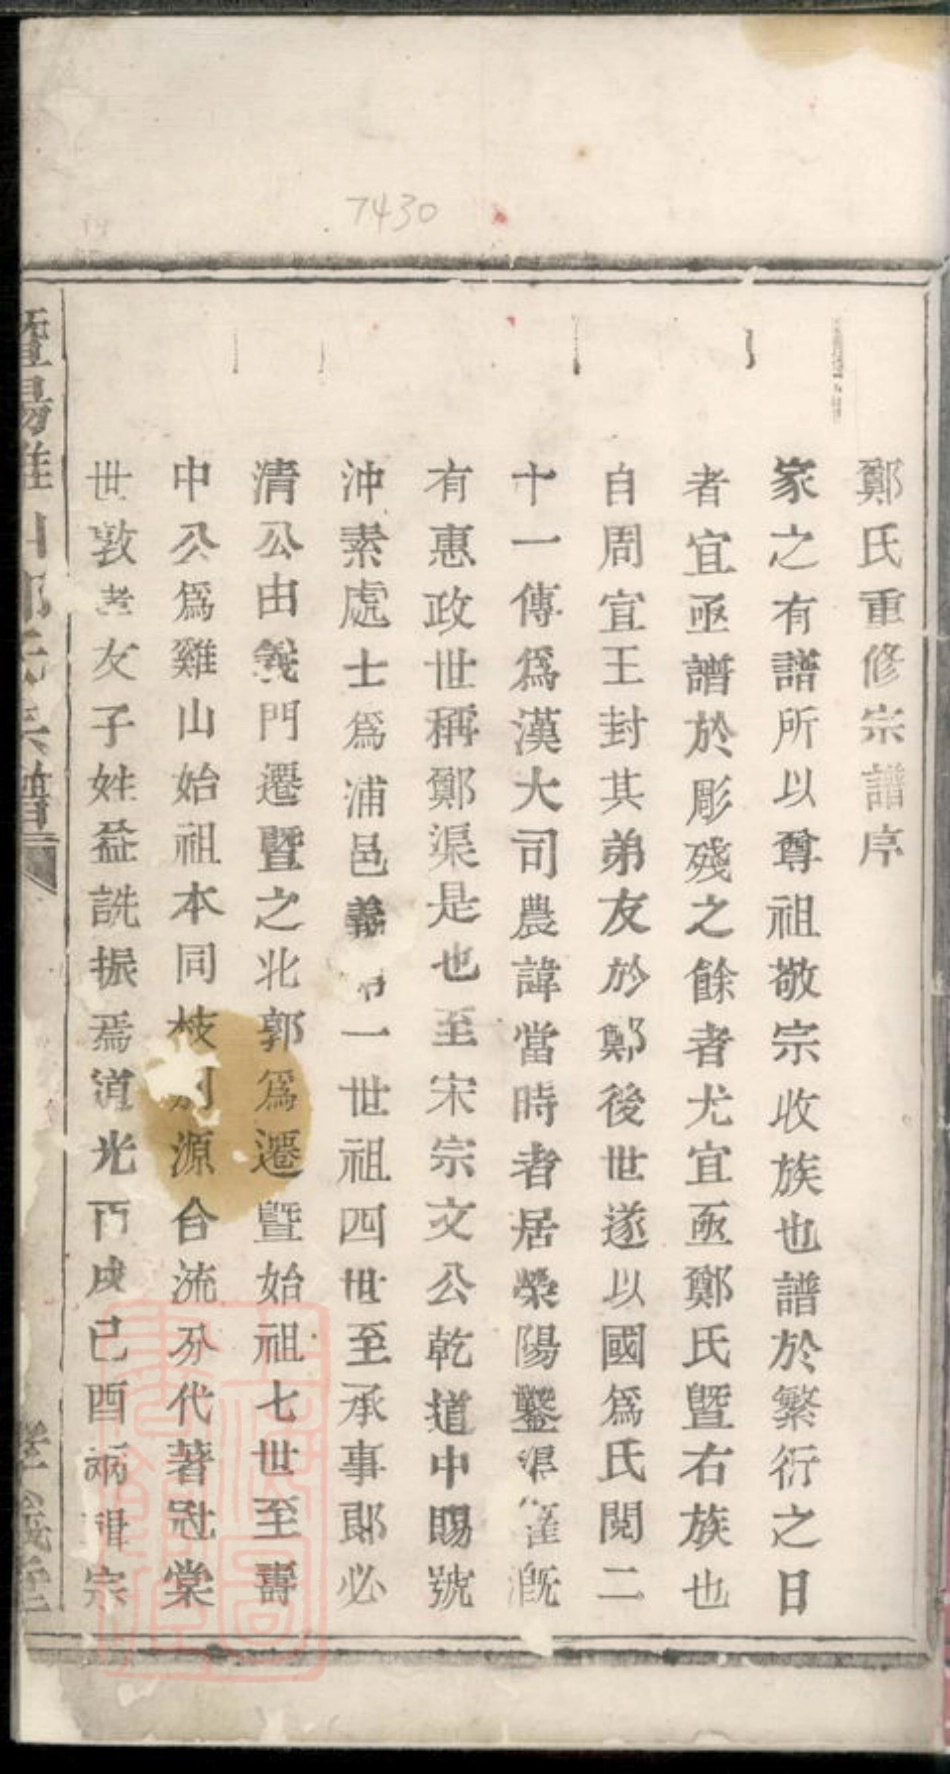 7430
鄭氏重修宗譜序
家之有譜所以尊祖敬宗收族也譜於繁衍之日
者宜亟譜於彫殘之餘者尤宜亟鄭氏暨右族也
自周宣王封其弟友於鄭後世遂以國爲氏閱二
十一傳爲漢大司農諱當時者居滎陽鑿渠灌溉
有惠政世稱鄭渠是也至宋宗文公乾道中賜號
沖素處士爲浦邑義門一世祖四世至承事郎必
清公由義門遷暨之北郭爲遷暨始祖七世至壽
中公爲雞山始祖本同枝別源合流分代著冠棠
世敦孝友子姓益詵振焉道光丙戌已酉兩書宗
暨陽雞山鄭氏宗譜
孝義堂